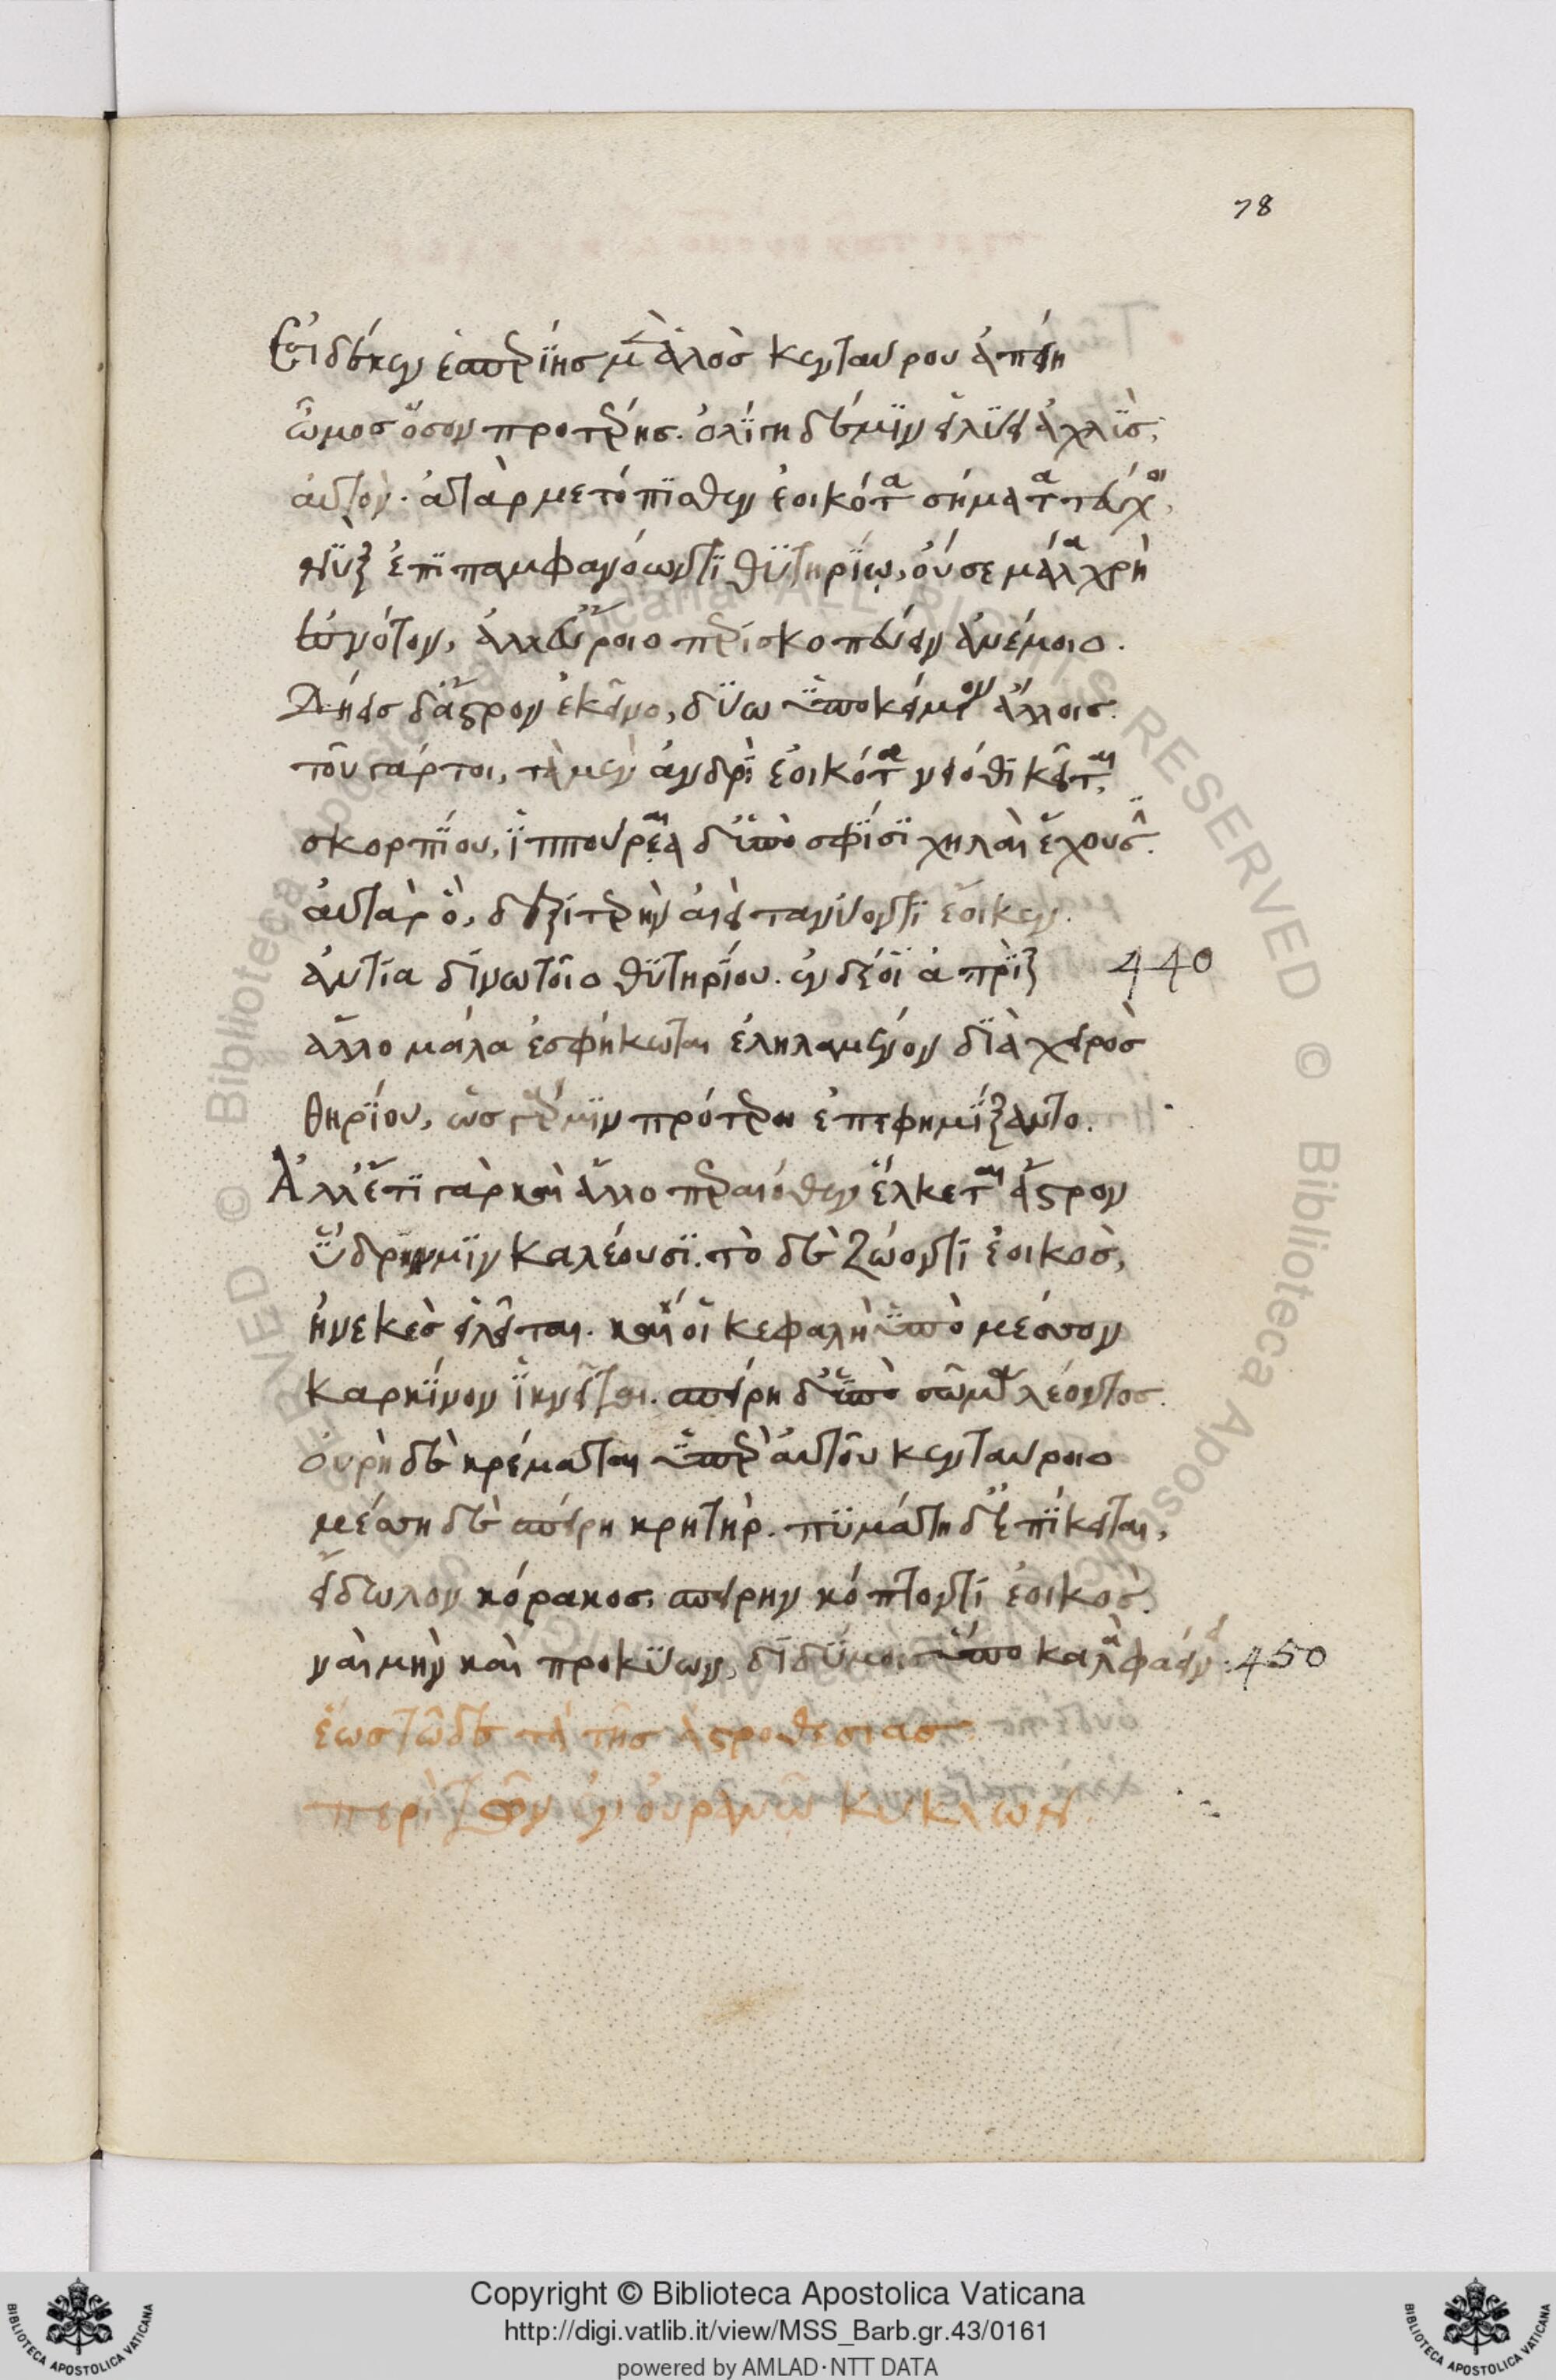 78
Εἰ δέ κεν ἑσπερίης μὲν ἁλὸς Κενταύρου ἀπείη
ὦμος ὅσον προτέρης. ὀλίγη δέ μϊν εἰλύει ἀχλὺς,
αὐτὸν. ἀτὰρ μετόπϊσθεν ἐοικότα σήματα τεύχοι,
Νὺξ ἐπὶ παμφανόωντϊ θϋτηρίῳ, οὔ σε μάλα χρὴ
ἐς νότον, ἀλλ' εὔροιο περίσκοπέειν ἀνέμοιο.
Δήεις δ' ἄστρον ἐκεῖνο, δύω ὑποκείμενον ἄλλοις.
τοῦ γάρ τοι, τὰ μὲν ἀνδρὶ ἐοικότα νειόθϊ κεῖται,
σκορπίου, ἱππουρέαι δ' ὑπὸ σφίσϊ χηλαὶ ἔχουσι.
αὐτὰρ ὃ, δεξϊτερὴν αἰεὶ τανύοντϊ ἔοικεν.
ἀντία δϊνωτοῖο θϋτηρίου. ἐν δέ οἱ ἀπρὶξ 440
ἄλλο μάλα ἐσφήκωται ἐληλαμένον διὰ χειρὸς
θηρίου, ὣς γάρ μϊν πρότεροι ἐπεφημίξαντο.
Ἀλλ' ἔτι γὰρ καὶ ἄλλο περαιόθεν ἕλκεται ἄστρον
ὕδρην μϊν καλέουσϊ. τὸ δὲ ζώοντϊ ἐοικὸς,
ἠνεκὲς εἰλεῖται. καί οἱ κεφαλὴ ὑπὸ μέσσον
Καρκίνον ἱκνεῖται. σπείρη δ' ὑπὸ σῶμα λέοντος.
Οὐρὴ δὲ κρέμαται ὑπὲρ αὐτοῦ κενταύροιο
μέσση δὲ σπείρη κρητὴρ. πϋμάτη δ' ἐπίκειται,
εἴδωλον κόρακος. σπείρην κόπτοντϊ ἐοικὸς.
ναὶ μὴν καὶ προκύων, διδύμοις ὕπο καλὰ φαείνει. 450
ἕως τῶδε τὰ τῆς ἀστροθεσίας
περὶ τῶν ἐν οὐρανῷ κύκλων
Copyright © Biblioteca Apostolica Vaticana
http://digi.vatlib.it/view/MSS_Barb.gr.43/0161
powered by AMLAD·NTT DATA